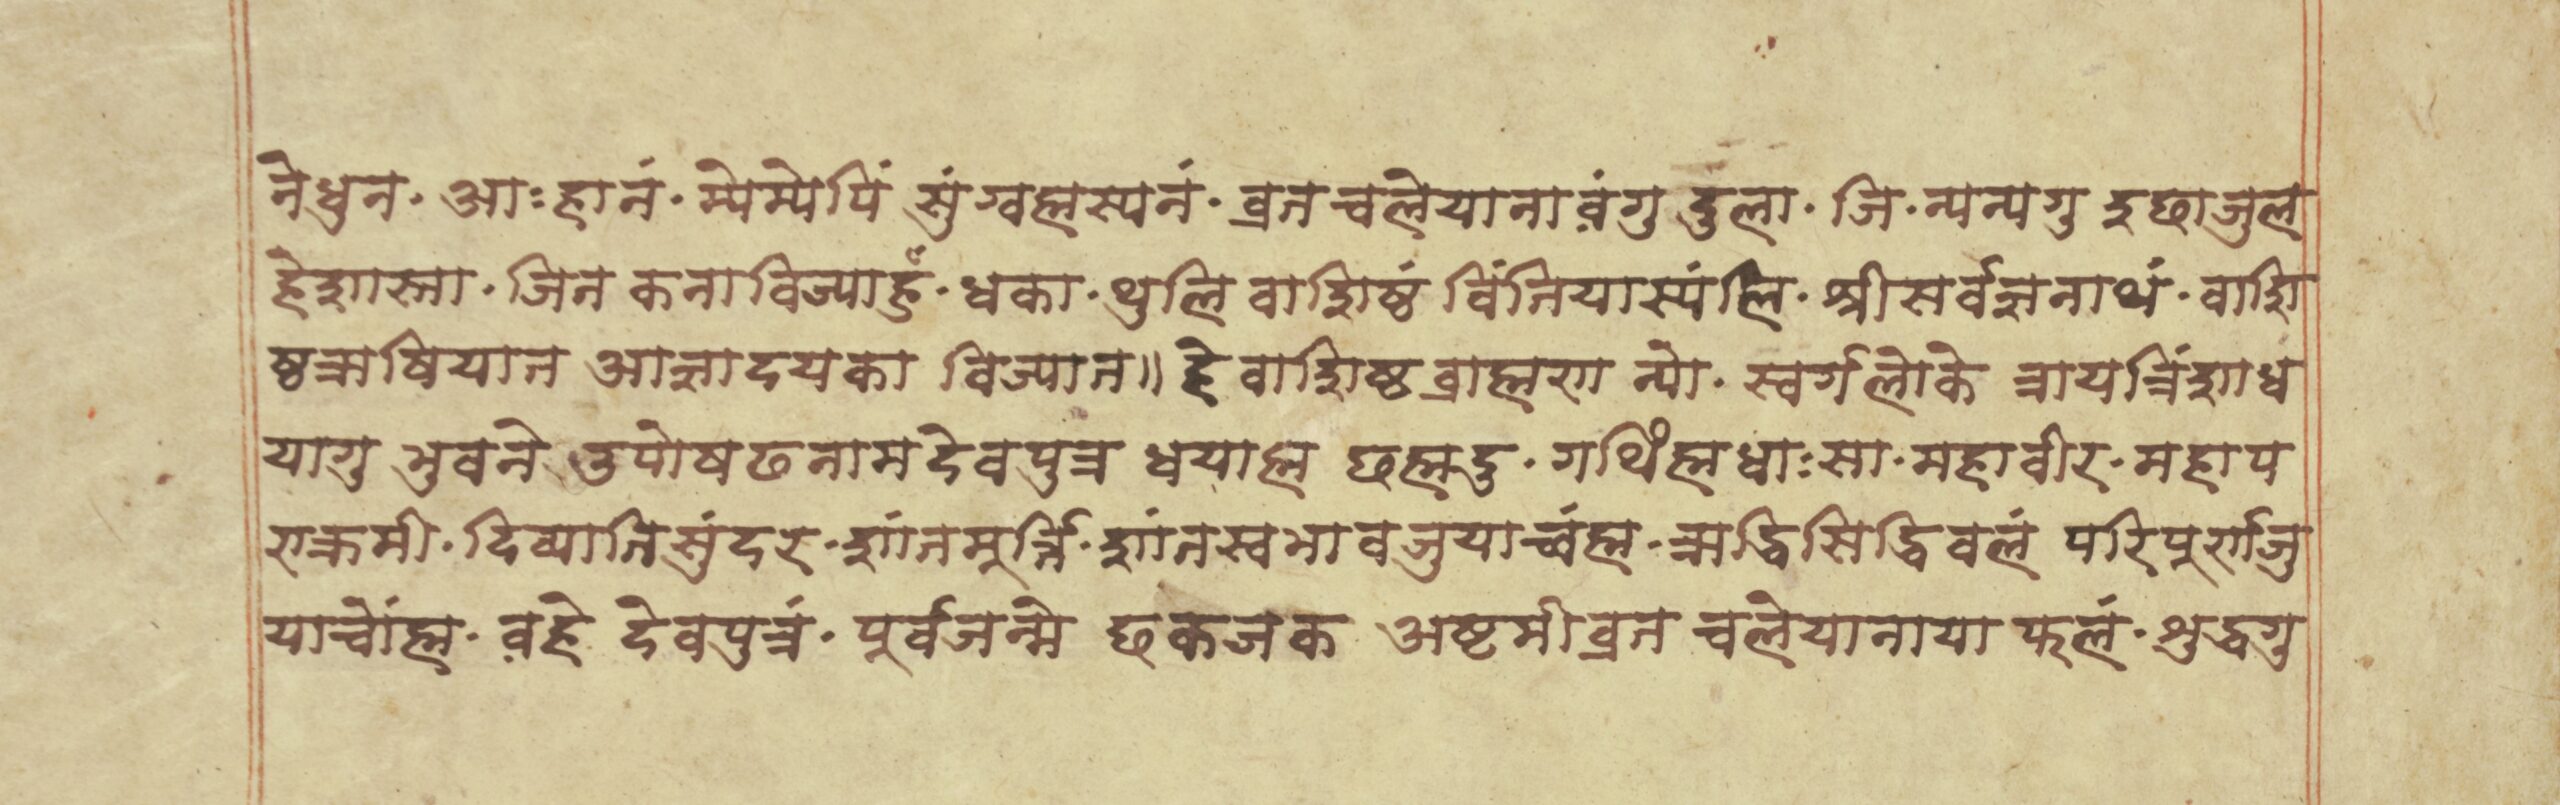 नेधुन· आः हानं· म्येम्येपिं सुं ग्वह्मस्यनं· व्रत चलेयाना व़ंगु दुला· जि· न्यन्यगु इछाजुल
हेशास्ता· जित कनाविज्याहुँ· धका· थुलि वाशिष्ठं विंतियास्यंलि· श्रीसर्वज्ञनाथं· वाशि
ष्ठऋषियात आज्ञादयका विज्यात॥ हे वाशिष्ठ ब्राह्मण न्यो· स्वर्गलोके त्रायत्रिंशाध
यागु भुवने उपोषढनामदेवपुत्र धयाह्म छह्मदु· गथिंह्मधाःसा· महावीर· महाप
राक्रमी· दिव्यातिसुंदर· शांतमूर्त्ति· शांतस्वभावजुयाच्वंह्म· ऋद्धिसिद्धिवलं परिपूर्णजु
याचोंह्म· व़हे देवपुत्रं· पूर्वजन्मे छकजक अष्टमीव्रत चलेयानाया फलं· शुद्धगु